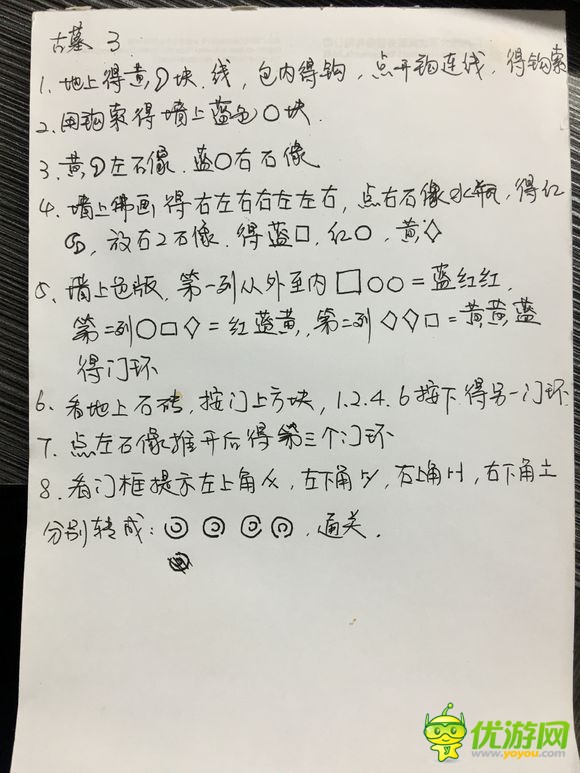 古墓 3
1. 地上得黄 块. 线, 包内得钩, 点开钩连线, 得钩索
2. 用钩索得墙上蓝色○块.
3. 黄 左石像. 蓝○右石像
4. 墙上佛画得右左右右左左右, 点右石像水瓶, 得红
, 放右2石像. 得蓝□, 红○, 黄◇
5. 墙上色版. 第一列从外至内□○○=蓝红红,
第二列○□◇=红蓝黄, 第三列◇◇□=黄黄蓝
得门环
6. 看地上石砖, 按门上方块, 1.2.4.6按下. 得另一门环
7. 点左石像推开后得第三个门环
8. 看门框提示左上角 , 左下角 , 右上角 , 右下角土
分别转成: . 通关.
优游网
www.yoyou.com